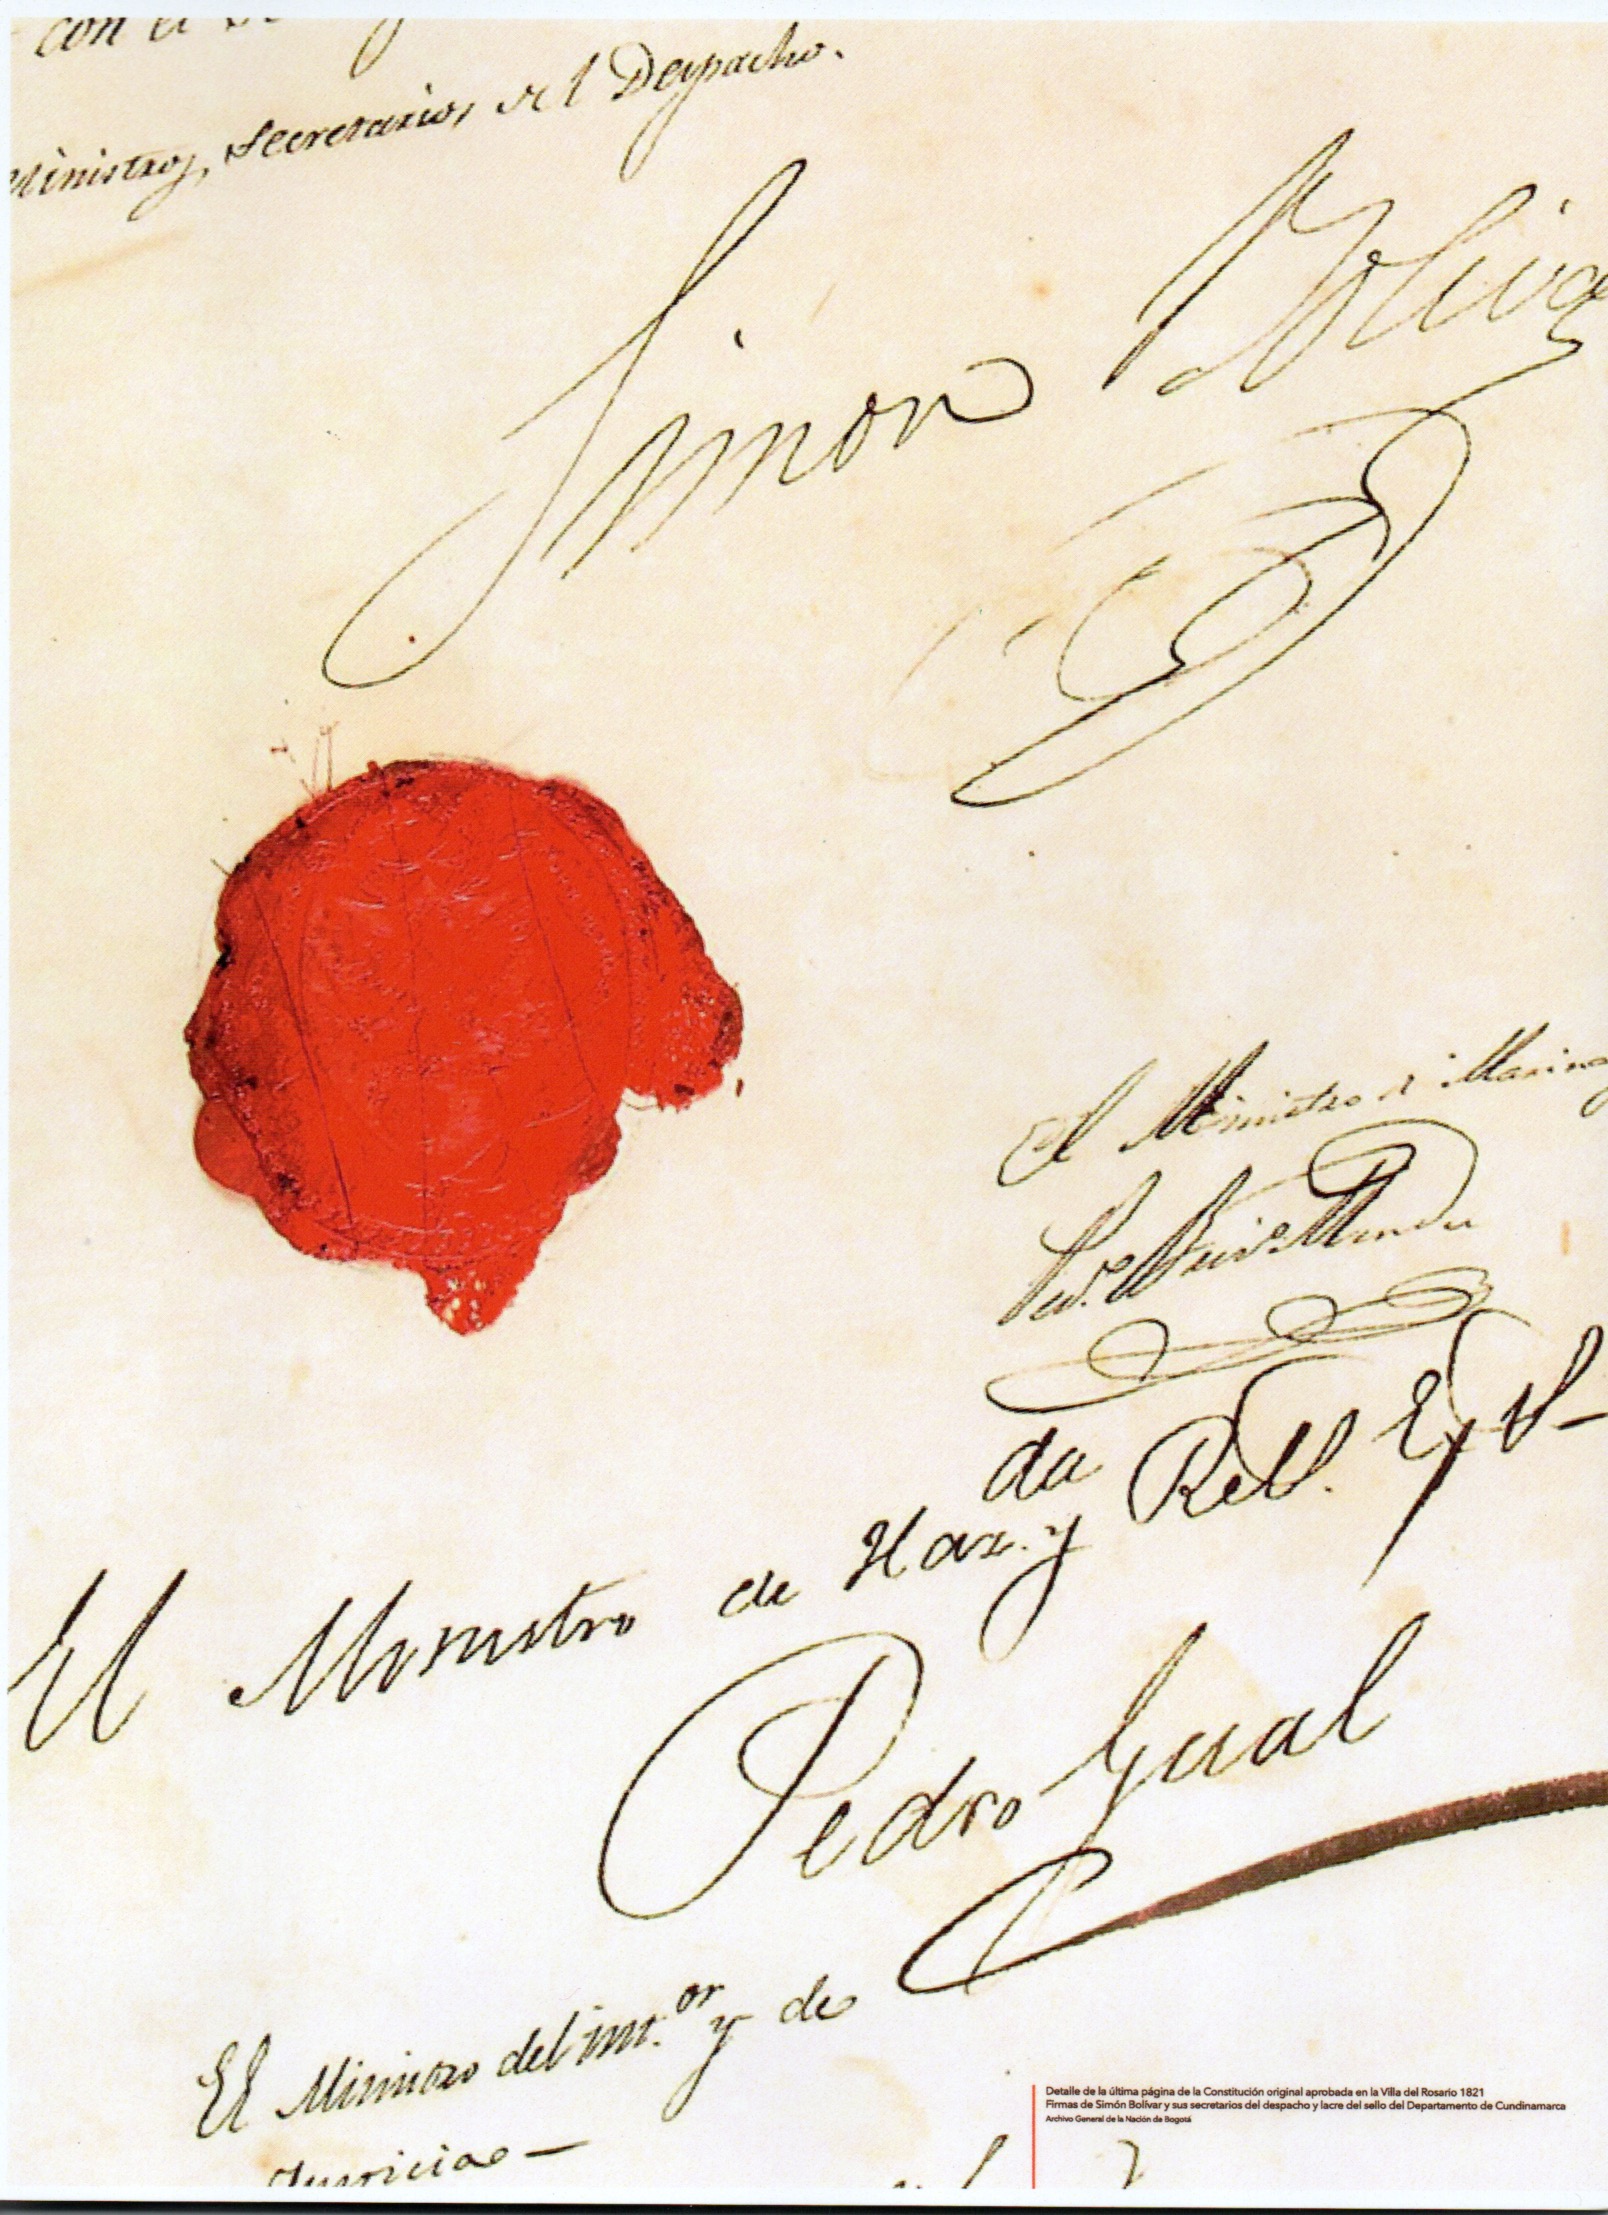 con el
Ministros, Secretarios del Despacho.
Simon Boliva
El Ministro d Marina
El Ministro de Haz.da y Rel.s Ex.s –
Pedro Gual
El Ministro del Int.or y de
Justicia –
Detalle de la última página de la Constitución original aprobada en la Villa del Rosario 1821
Firmas de Simón Bolívar y sus secretarios del despacho y lacre del sello del Departamento de Cundinamarca
Archivo General de la Nación de Bogotá